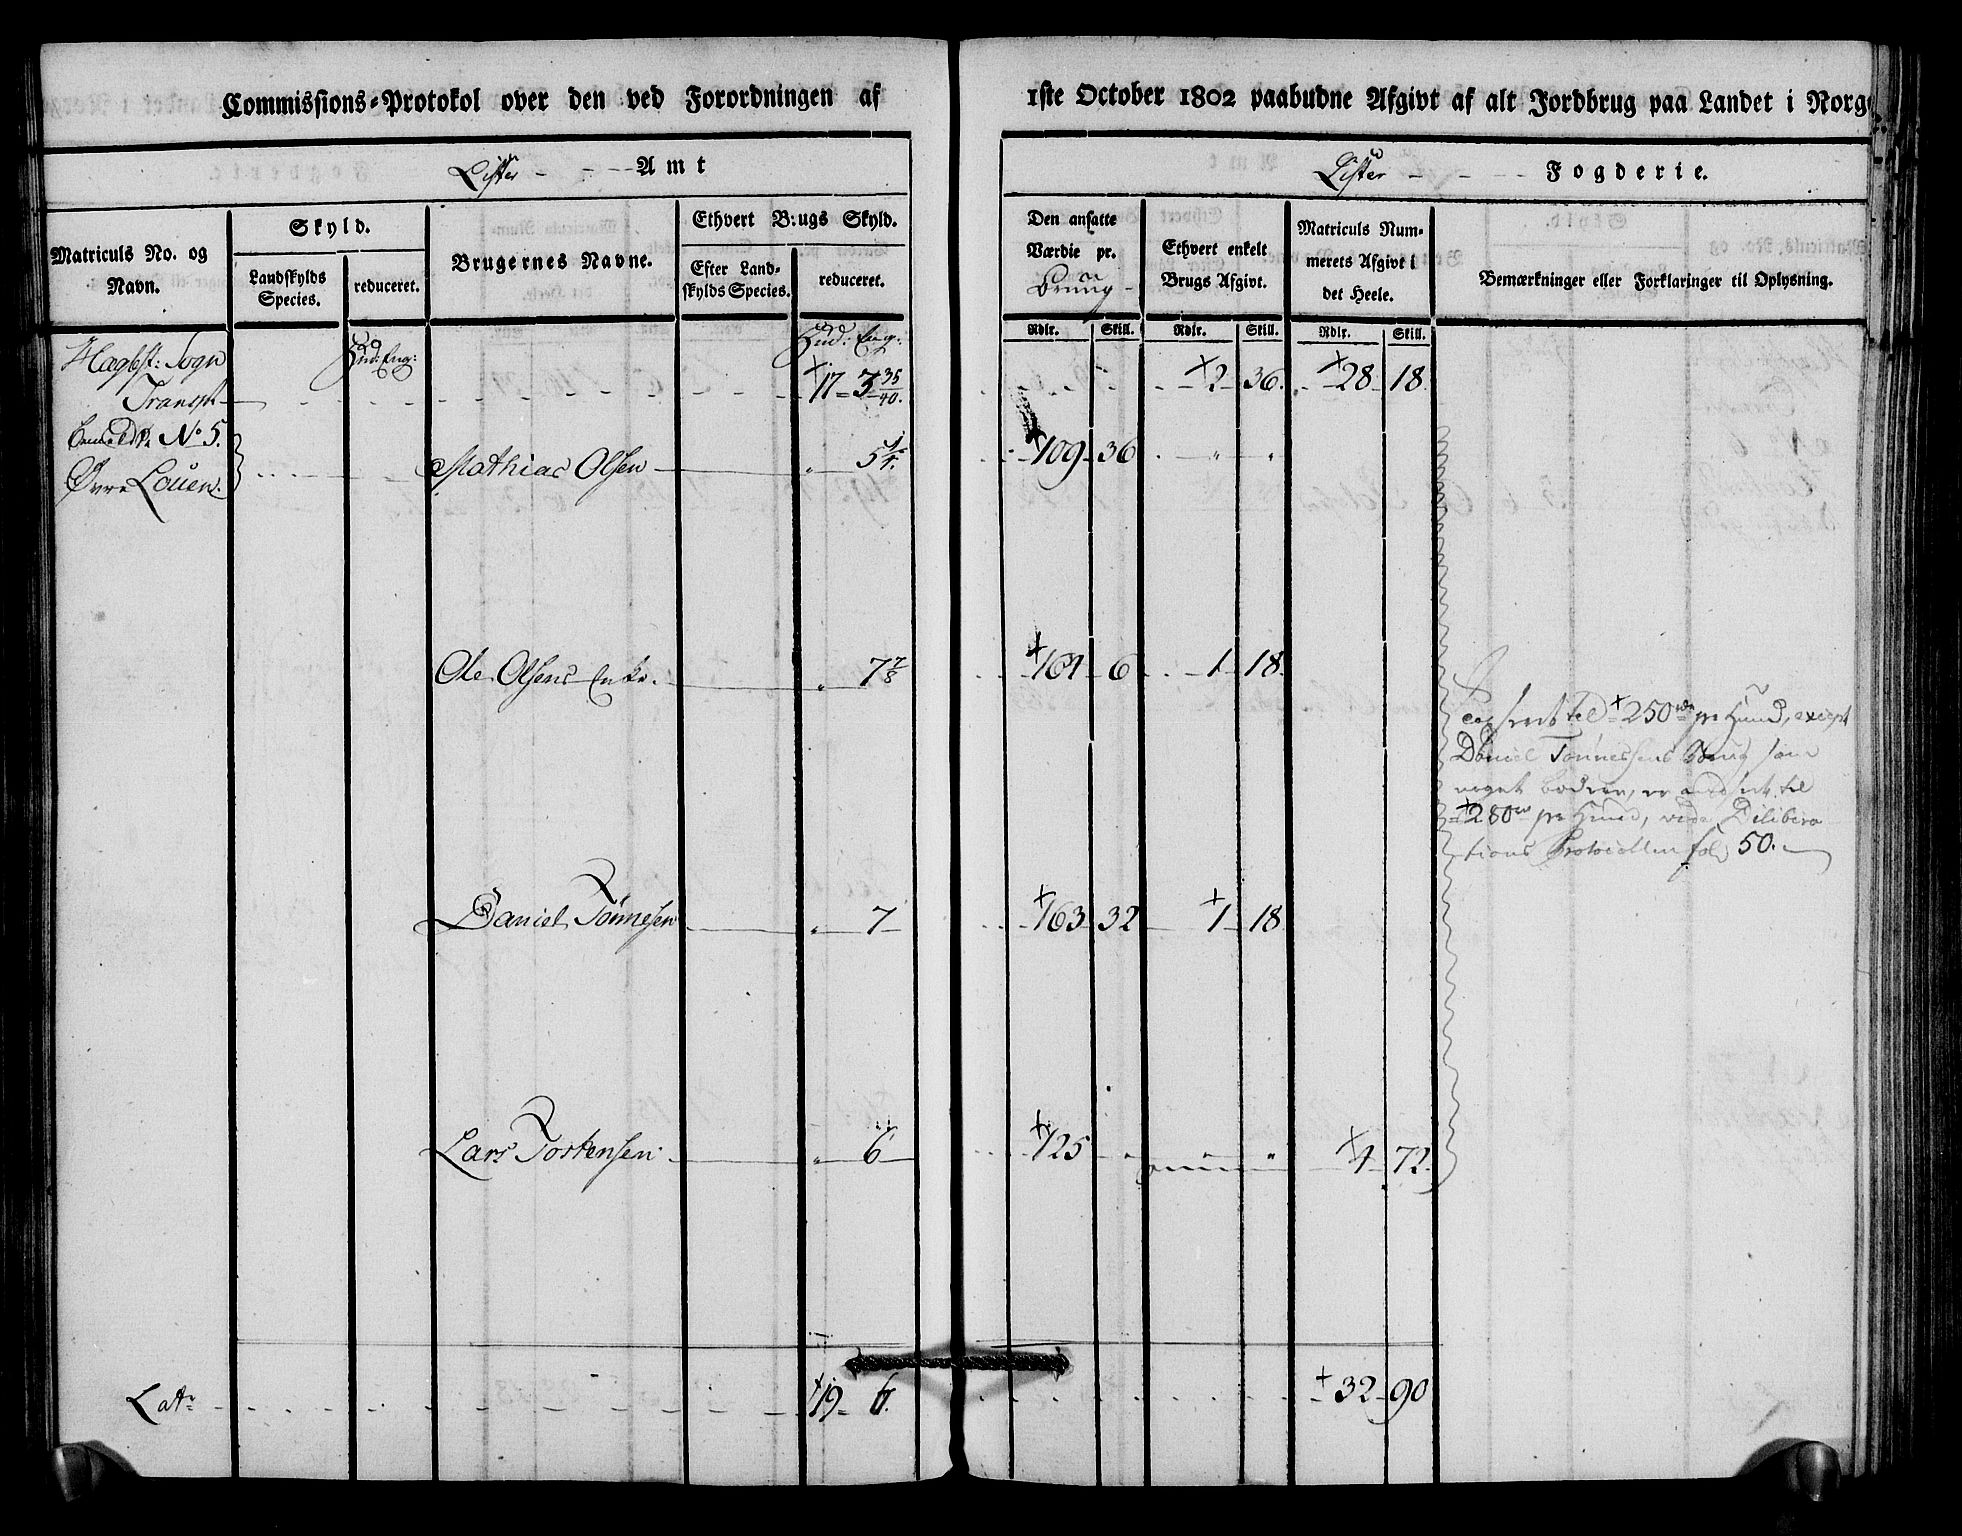 Commissions-Protokol over den ved Forordningen af 1ste October 1802 paabudne Afgivt af alt Jordbrug paa Landet i Norge
Lister Amt
Lister Fogderie.
Matriculs No. og Navn.
Skyld.
Landskylds Species.
reduceret.
Brugernes Navne.
Ethvert Brugs Skyld.
Efter Landskylds Species.
reduceret.
Den ansatte Værdie pr. Brug
Ethvert enkelt Brugs Afgivt.
Matriculs Nummerets Afgivt i det Heele.
Bemærkninger eller Forklaringer til Oplysning.
Rdlr. Skill. Rdlr. Skill. Rdlr. Skill.
Hud: Eng: Hud: Eng:
Hægbst: Sogn
Transpt 17 3 35/40. 2 36. 28 18
No 5.
Øvre Louen. Mathias Olsen " 5 109 36 " "
Ole Olsens Enke. " 7 7/8 164 6 1 18
ansat til 250 rdr pr Hud, except
Daniel Tønnessens Brug som
noget bedre, er ansat til
280 pr Hud, vide Delibera
tions Protocollen fol 50.
Daniel Tønnesen " 7 163 32 1 18
Lars Torkensen " 6 125 " " 4 72
Lat 19 6. 32 90